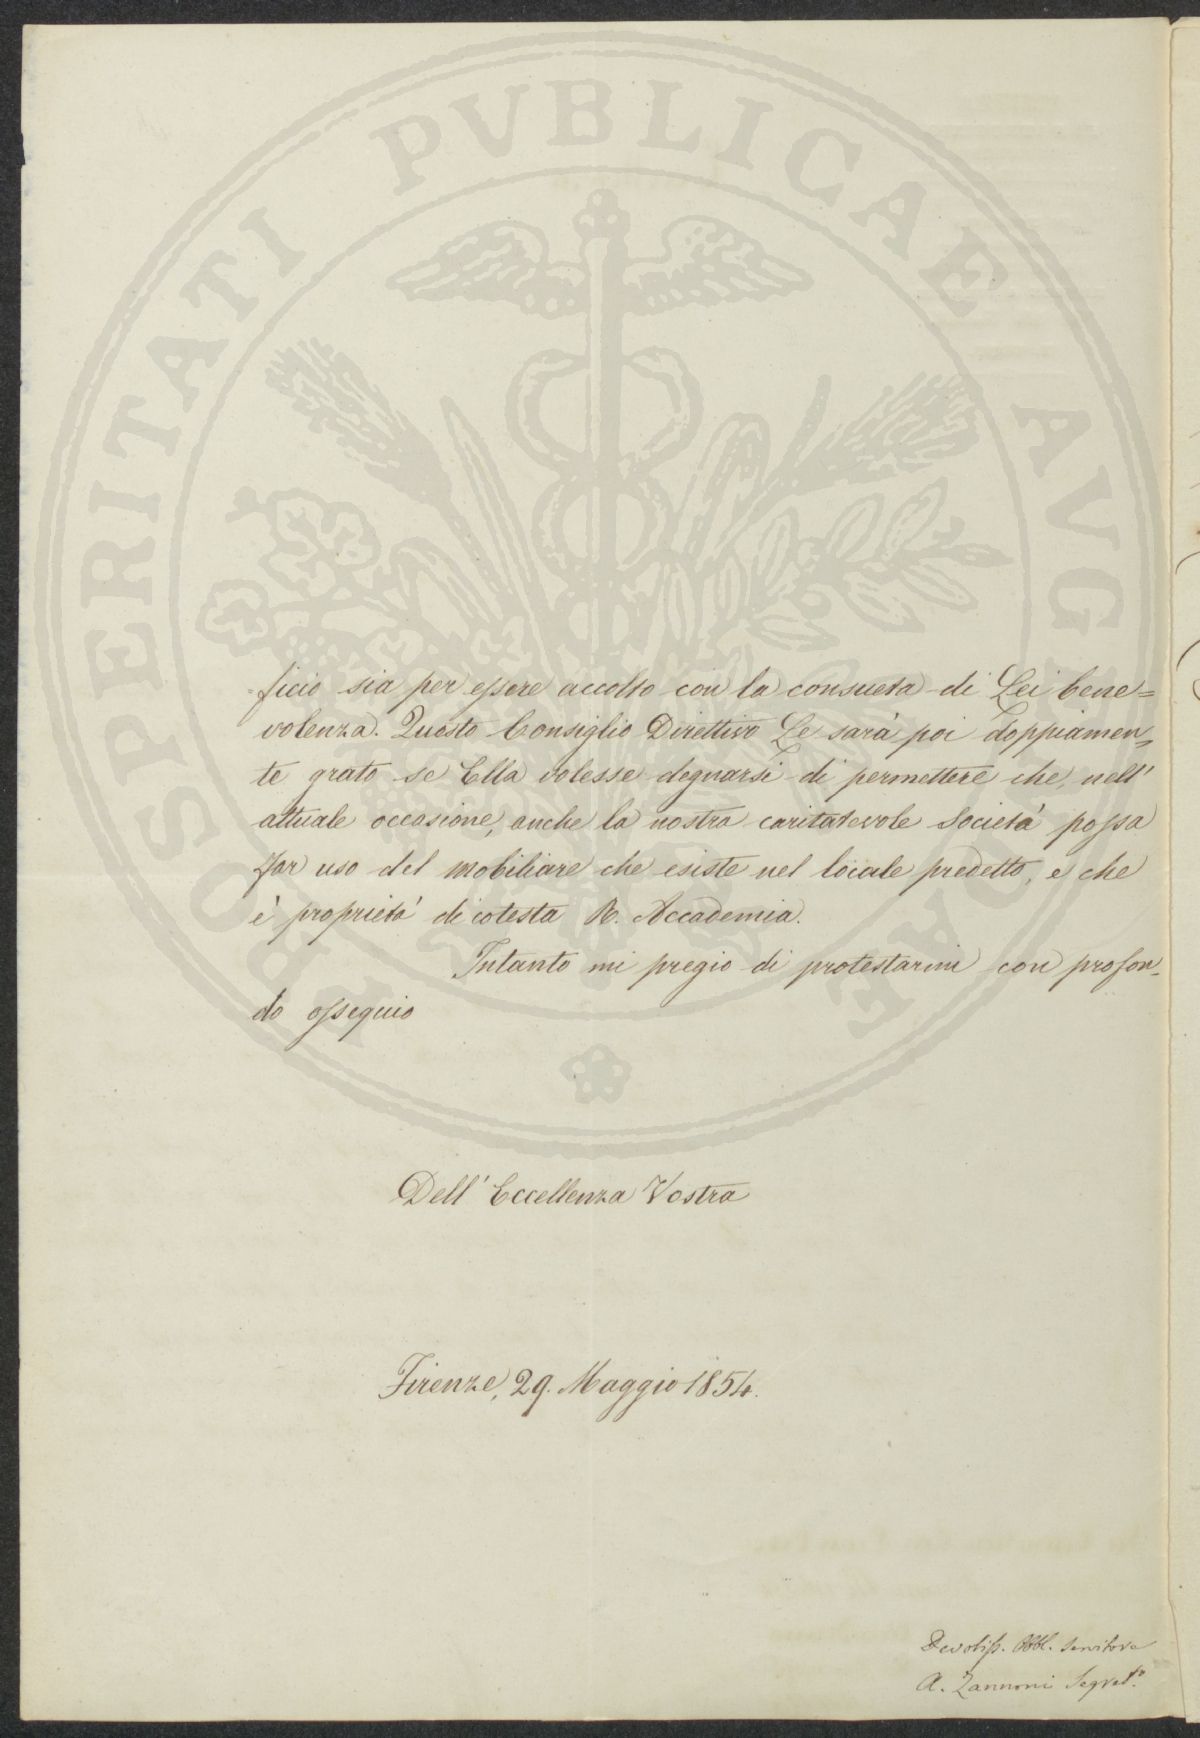 PROSPERITATI PUBLICAE AUGENDAE
ficio sia per essere accolto con la consueta di Lei bene=
volenza. Questo Consiglio Direttivo Le sarà poi doppiamen=
te grato se Ella volesse degnarsi di permettere che, nell'
attuale occasione, anche la nostra caritatevole Società possa
far uso del mobiliare che esiste nel locale predetto, e che
è proprietà di cotesta R. Accademia.
Intanto mi pregio di protestarmi con profon=
do ossequio
Dell' Eccellenza Vostra
Firenze, 29. Maggio 1854.
Devotiss. Obbl. Servitore
A. Zannoni Segret.º